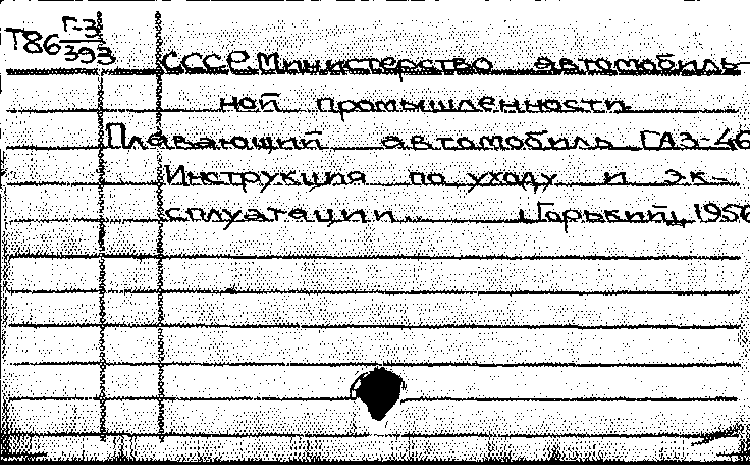 Т86 Г-3
393
СССР. Министерство автомобиль-
ной промышленности
Плавающий автомобиль ГАЗ-46
Инструкция по уходу и эк-
сплуатации. Горький, 1956